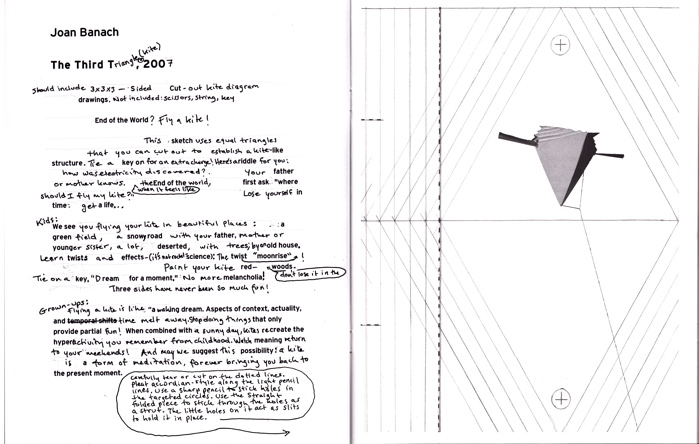 Joan Banach
(kite)
The Third Triangle, 2007
Should include 3x3x3 – Sided Cut-out kite diagram
drawings. Not included: scissors, string, key
End of the World? Fly a kite!
This sketch uses equal triangles
that you can cut out to establish a kite-like
structure. Tie a key on for an extra charge! Here's a riddle for you:
how was electricity discovered? Your father
or mother knows. the End of the world, first ask "where
when it feels like
should I fly my kite? Lose yourself in
time: get a life...
Kids:
We see you flying your kite in beautiful places: a
green field, a snowy road with your father, mother or
younger sister, a lot, deserted, with trees, by an old house.
Learn twists and effects- (it's not science): The twist "moonrise"!
Paint your kite red- woods.
Tie on a key, "Dream for a moment," No more melancholia! don't lose it in the
Three sides have never been so much fun!
Grown-ups:
Flying a kite is like, "a waking dream. Aspects of context, actuality,
and temporal shifts time melt away. Stop doing things that only
provide partial fun! When combined with a sunny day, kites re-create the
hyperactivity you remember from childhood. Watch meaning return
to your weekends! And may we suggest this possibility: a kite
is a form of meditation, forever bringing you back to
the present moment.
Carefully tear or cut on the dotted lines.
Pleat accordian-style along the light pencil
lines. Use a sharp pencil to stick holes in
the targeted circles. Use the straight
folded piece to stick through the holes as
a strut. The little holes on it act as slits
to hold it in place.